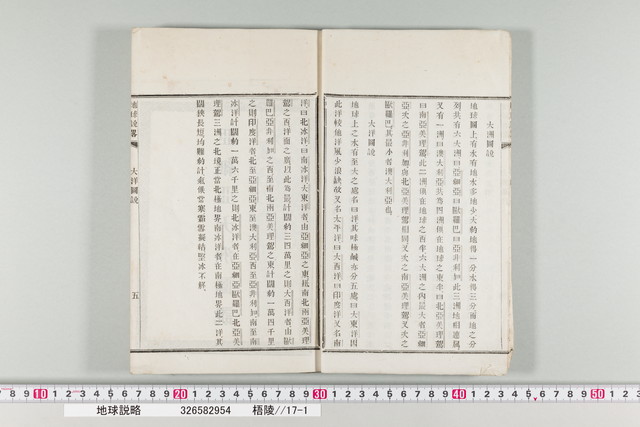 大洲圖說
地球圖上有水有地水多地少大約地得一分水得三分而地之分
列共有六大洲曰亞細亞曰歐羅巴曰亞非利加此三洲地相連屬
又有一洲曰澳大利亞共為四洲俱在地球之東半曰北亞美理駕
曰南亞美理駕此二洲俱在地球之西半六大洲之內最大者亞細
亞次之亞非利加與北亞美理駕相同又次之南亞美理駕又次之
歐羅巴其最小者澳大利亞也
大洋圖說
地球圖上之水有至大之處名曰洋其味極鹹亦分五處曰大東洋因
此洋較他洋風少浪缺故又名太平洋曰大西洋曰印度洋又名南
洋曰北冰洋曰南冰洋大東洋者由亞細亞之東抵南北兩亞美理
駕之西洋面之寬以此為最計闊約三四萬里之則大西洋者由歐
羅巴亞非利加之西至南北兩亞美理駕之東計闊約一萬四千里
之則印度洋者北至亞細亞東至澳大利亞西至亞非利加南至南
冰洋計闊約一萬六千里之則北冰洋者在亞細亞歐羅巴北亞美
理駕三洲之北境正當北極地界南冰洋者在南極地界此二洋其
闊狹長短均難約計氣候當寒霜雪凝結堅冰不解
地球說略
大洋圖說
五
地球説略 326582954 梧陵//17-1
10 20 30 40 50